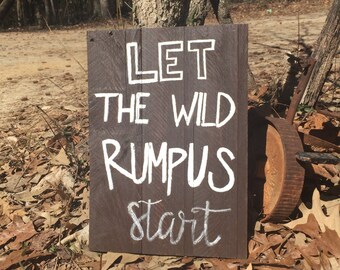 LET
THE WILD
RUMPUS
Start